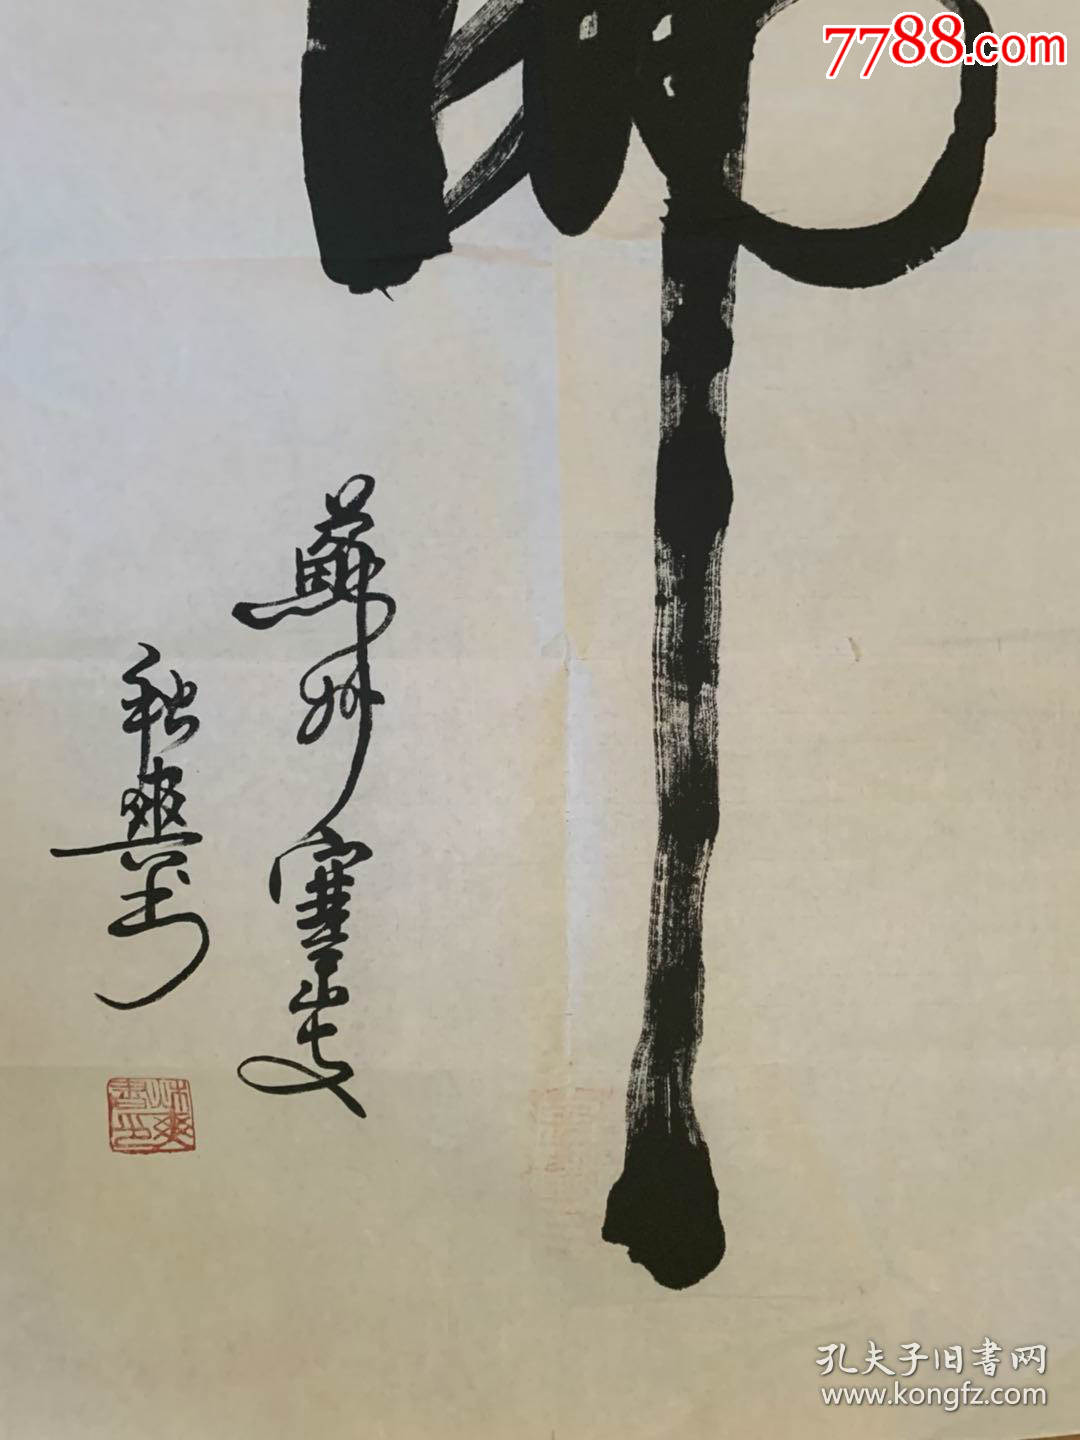 7788.com
佛
蘇州寒山寺
秋爽書
秋爽書印
孔夫子旧書网
www.kongfz.com